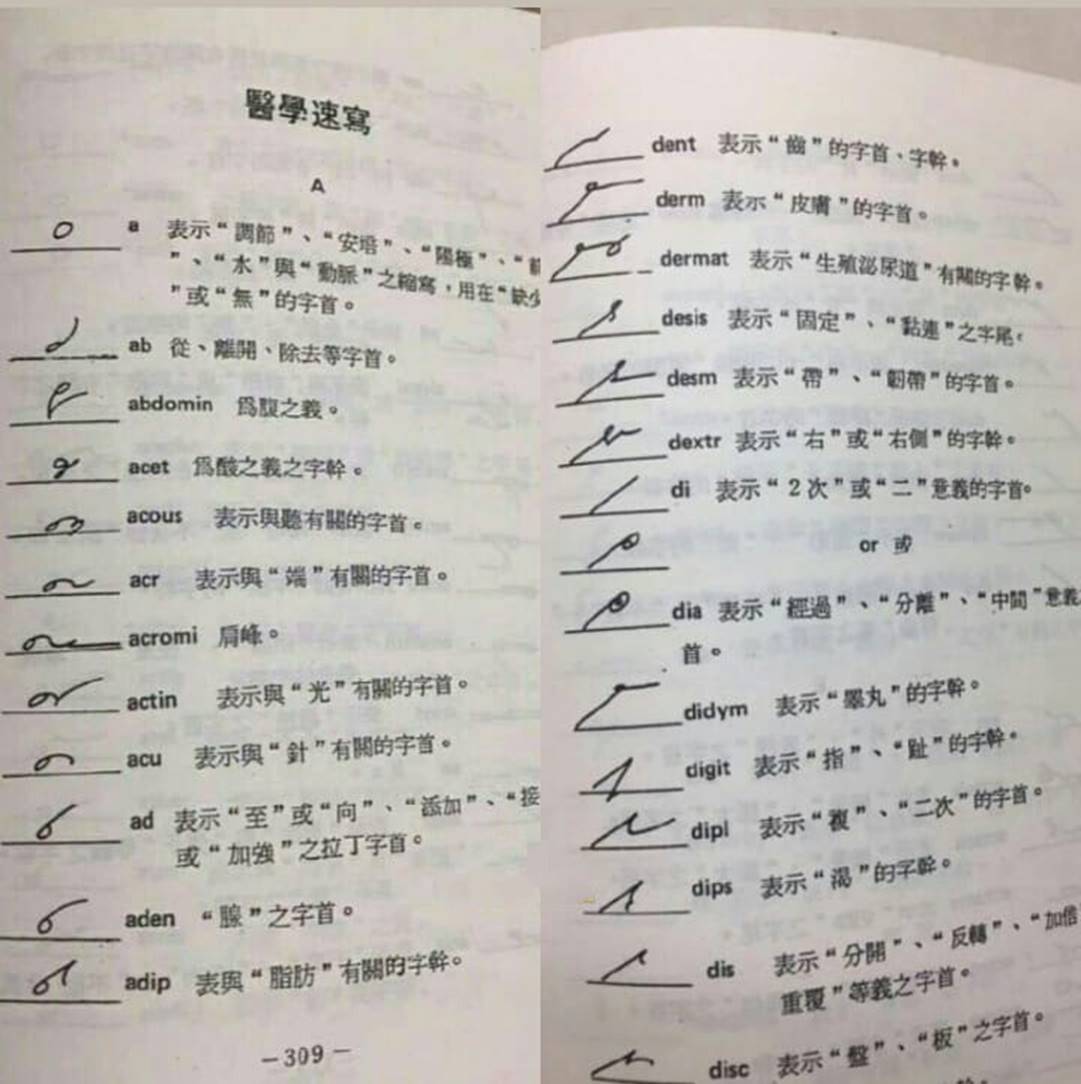 醫學速寫
A
a 表示“調節”、“安培”、“陽極”、“前
”、“水”與“動脈”之縮寫，用在“缺少
”或“無”的字首。
ab 從、離開、除去等字首。
abdomin 爲腹之義。
acet 爲酸之義之字幹。
acous 表示與聽有關的字首。
acr 表示與“端”有關的字首。
acromi 肩峰。
actin 表示與“光”有關的字首。
acu 表示與“針”有關的字首。
ad 表示“至”或“向”、“添加”、“接
或“加強”之拉丁字首。
aden “腺”之字首。
adip 表與“脂肪”有關的字幹。
－309－
dent 表示“齒”的字首、字幹。
derm 表示“皮膚”的字首。
dermat 表示“生殖泌尿道”有關的字幹。
desis 表示“固定”、“黏連”之字尾。
desm 表示“帶”、“韌帶”的字首。
dextr 表示“右”或“右側”的字幹。
di 表示“2次”或“二”意義的字首。
or 或
dia 表示“經過”、“分離”、“中間”意義
首。
didym 表示“睪丸”的字幹。
digit 表示“指”、“趾”的字幹。
dipl 表示“複”、“二次”的字首。
dips 表示“渴”的字幹。
dis 表示“分開”、“反轉”、“加倍
重覆”等義之字首。
disc 表示“盤”、“板”之字首。